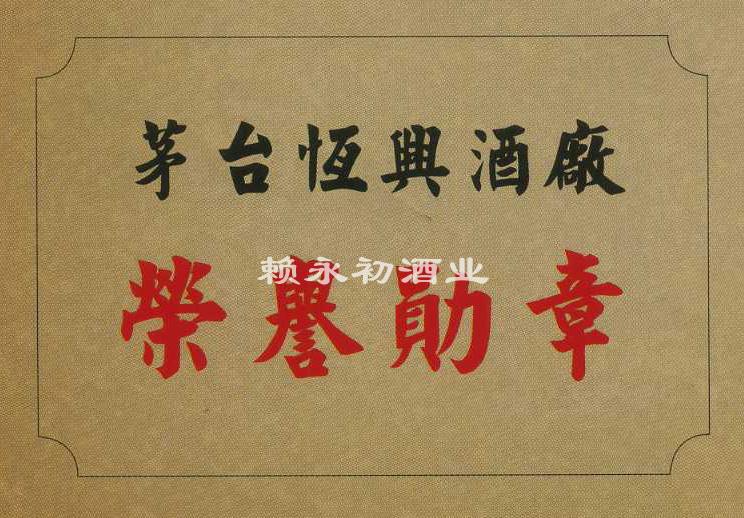 茅台恆興酒廠
榮譽勛章
赖永初酒业